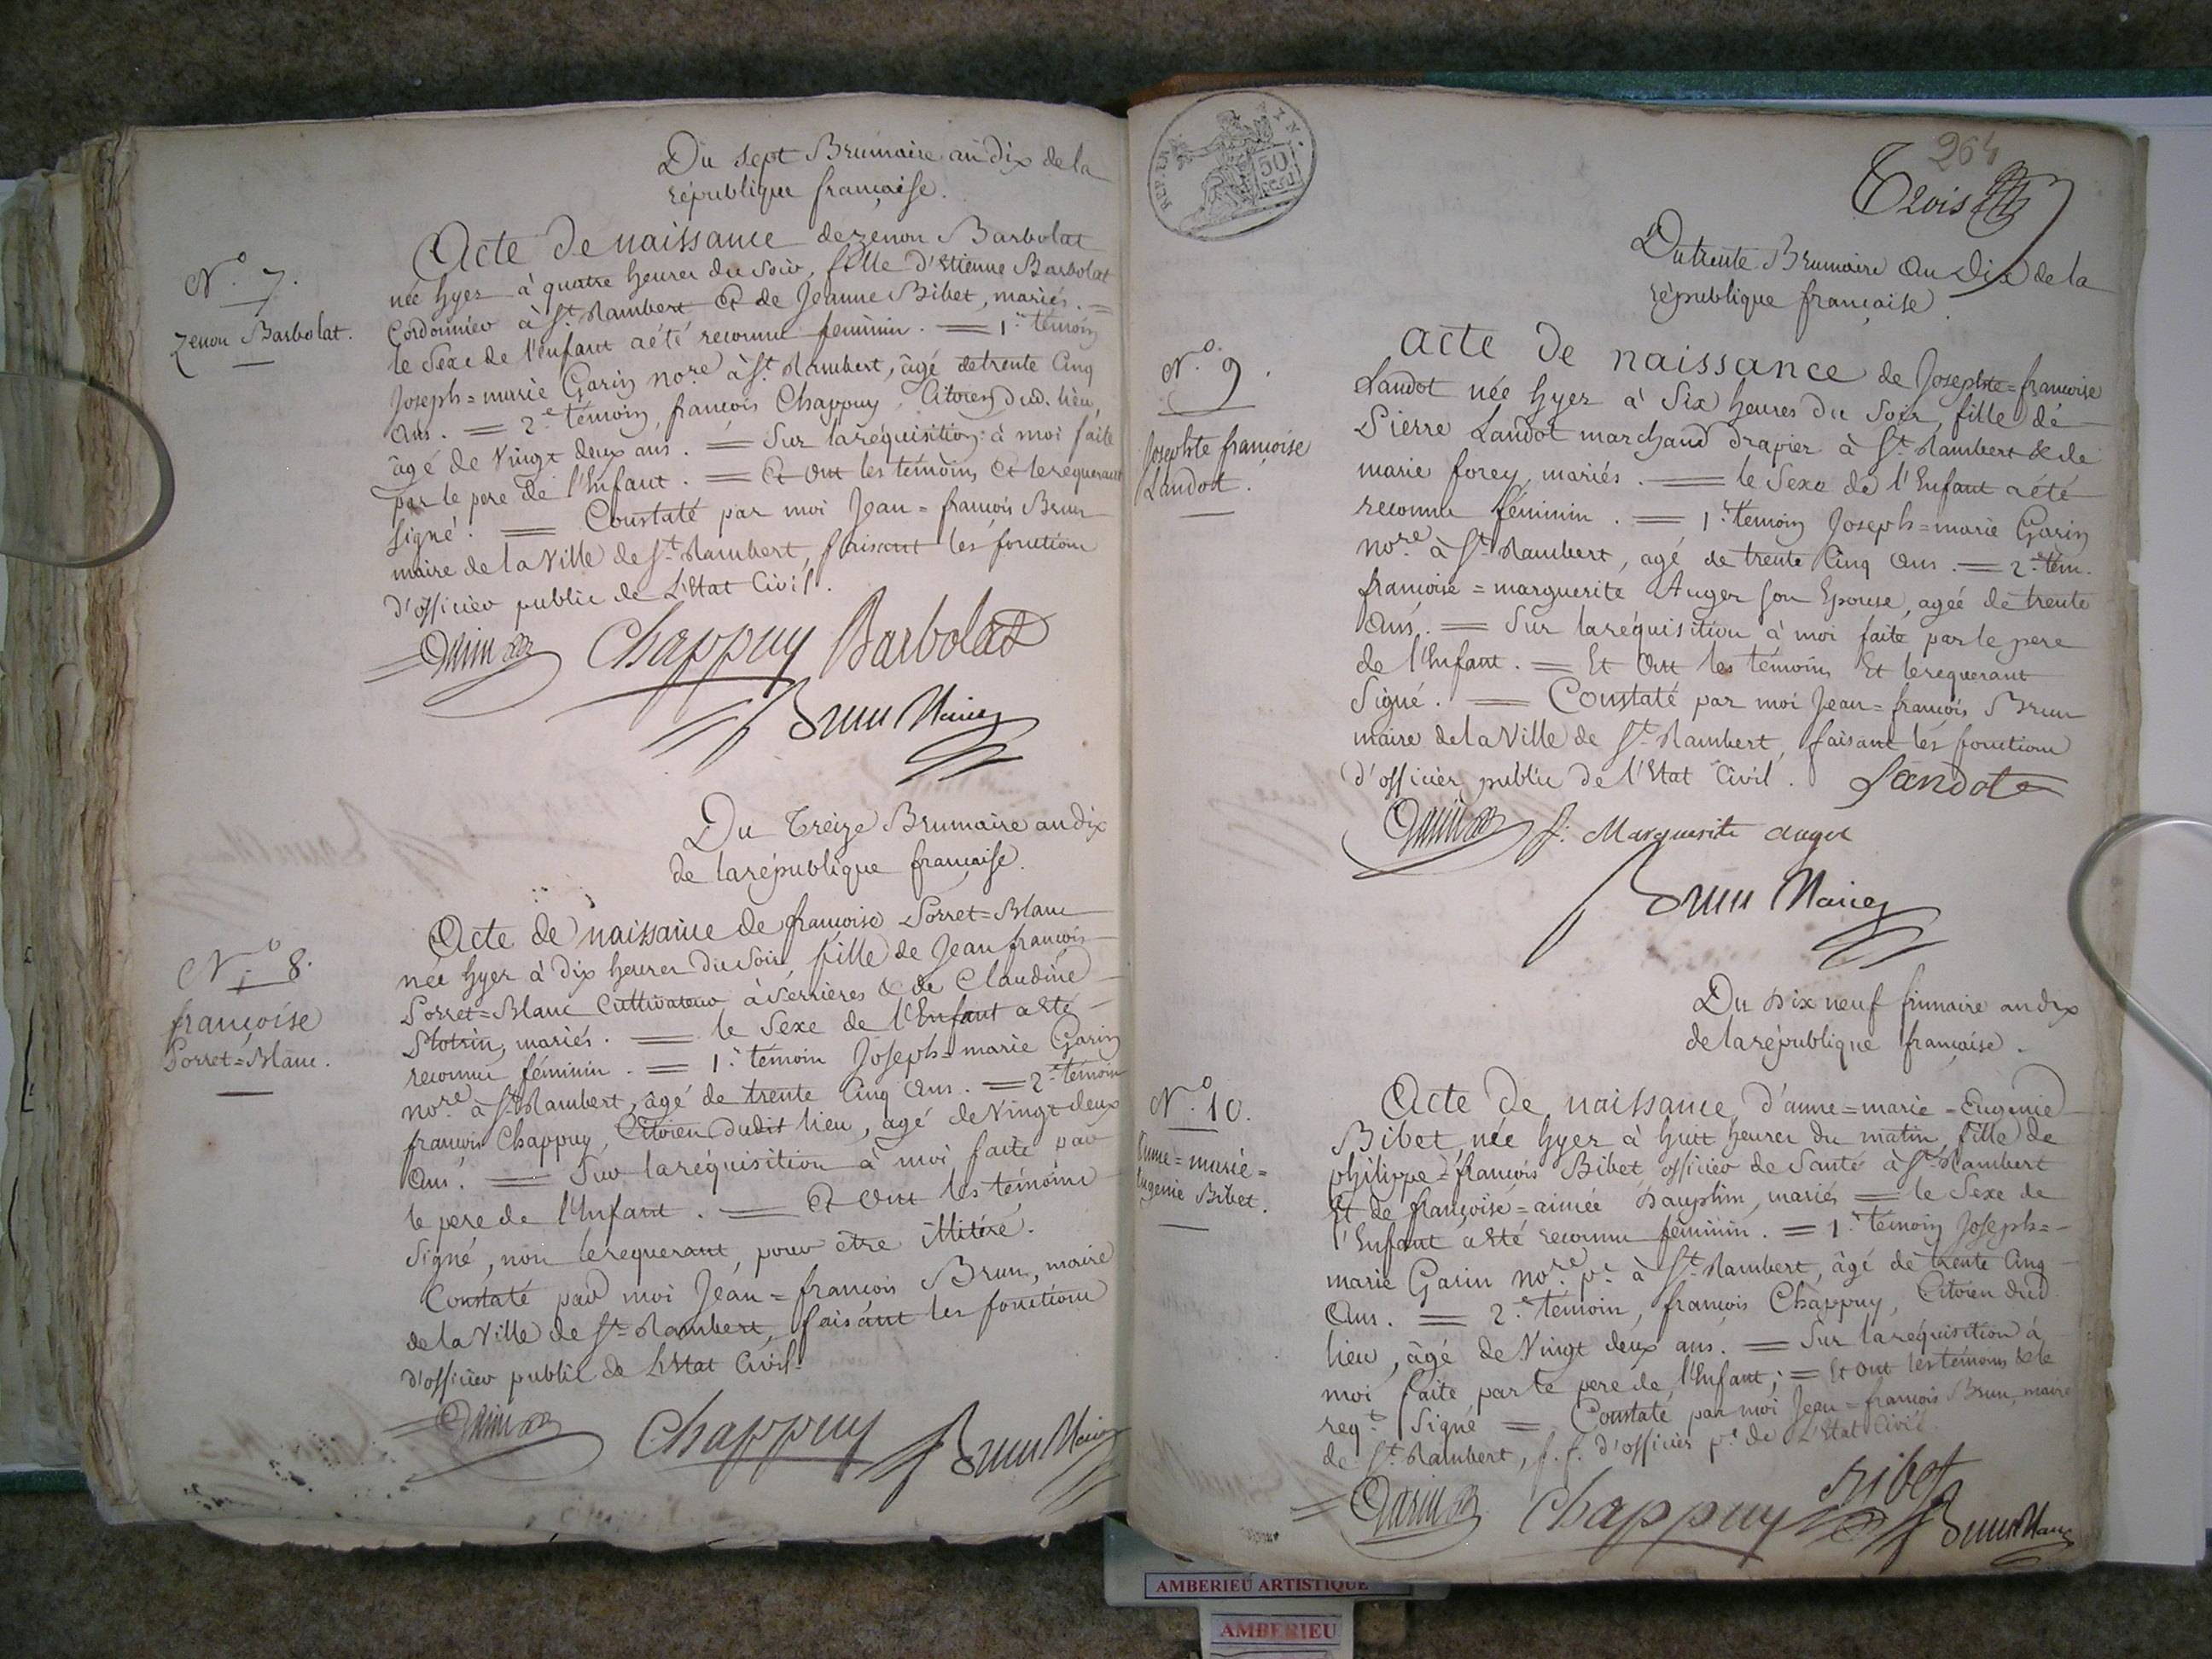 Du sept Brumaire an dix de la
république française.
N.o 7.
Zenon Barbolat.
Acte de naissance de zenon Barbolat
née hyer à quatre heures du soir, fille d'Etienne Barbolat
Cordonnier à St. Rambert et de Jeanne Bibet, mariés. =
le Sexe de l'enfant a été reconnu feminin. = 1.r témoin
Joseph=marie Garin no.re à St. Rambert, âgé de trente Cinq
Ans. = 2.e témoin, françois Chappuy, Citoien dud. lieu,
âgé de Vingt deux ans. = Sur la réquisition à moi faite
par le pere de l'Enfant. = Et ont les témoins et le requerant
signé. = Constaté par moi Jean=françois Brun
maire de la Ville de St. Rambert, faisant les fonctions
d'officier public de L'Etat Civil.
Garin Chappuy Barbolat
Brun Maire
Du Treize Brumaire an dix
de la république française.
N.o 8.
françoise
Porret=Blanc.
Acte de naissance de françoise Porret=Blanc
née hyer à dix heures du soir, fille de Jean françois
Porret=Blanc Cultivateur à Serrieres & de Claudine
mariés. = le Sexe de l'Enfant a été
reconnu féminin. = 1.r témoin Joseph=marie Garin
no.re à St. Rambert, âgé de trente Cinq Ans. = 2.e témoin
françois Chappuy, Citoien dudit lieu, agé de Vingt deux
Ans. = Sur la réquisition à moi faite par
le pere de l'Enfant. = Et ont les témoins
signé, non le requerant, pour être illitéré.
Constaté par moi Jean=françois Brun, maire
de la Ville de St. Rambert, faisant les fonctions
d'officier public de L'Etat Civil.
Garin Chappuy Brun Maire
REP. FRA
50
CENT
264
Trois
Du trente Brumaire an Dix de la
république française.
N.o 9.
Josephte françoise
Landot.
Acte de naissance de Josephte=françoise
Landot née hyer à Six heures du Soir, fille de
Pierre Landot marchand drapier à St. Rambert & de
marie forey, mariés. = le Sexe de l'Enfant a été
reconnu féminin. = 1.r temoin Joseph=marie Garin
no.re à St. Rambert, agé de trente Cinq Ans. = 2.e tém.
françoise=marguerite Auger son Epouse, agée de trente
Ans. = Sur la réquisition à moi faite par le pere
de l'Enfant. = Et Ont les témoins Et le requerant
Signé. = Constaté par moi Jean=françois Brun
maire de la Ville de St. Rambert, faisant les fonctions
d'officier public de l'Etat Civil. Landot
Garin f: Marguerite auger
Brun Maire
Du Dix neuf frimaire an dix
de la république française.
N.o 10.
Anne=marie=
Eugenie Bibet.
Acte de naissance d'anne=marie=Eugenie
Bibet née hyer à huit heures du matin, fille de
philippe=françois Bibet officier de Santé à St. Rambert
Et de françoise=aimée Dauphin, mariés = le Sexe de
l'Enfant a été reconnu féminin. = 1.r témoin Joseph=
marie Garin no.re p.c à St. Rambert, âgé de trente Cinq
Ans. = 2.e témoin, françois Chappuy, Citoien dud.
lieu, âgé de Vingt deux ans. = Sur la réquisition à
moi faite par le pere de l'Enfant; = Et ont les témoins & le
req.t Signé = Constaté par moi Jean=françois Brun, maire
de St. Rambert, f. f. d'officier p.c de L'Etat Civil.
Garin Chappuy Bibet Brun Maire
AMBERIEU ARTISTIQUE
AMBERIEU